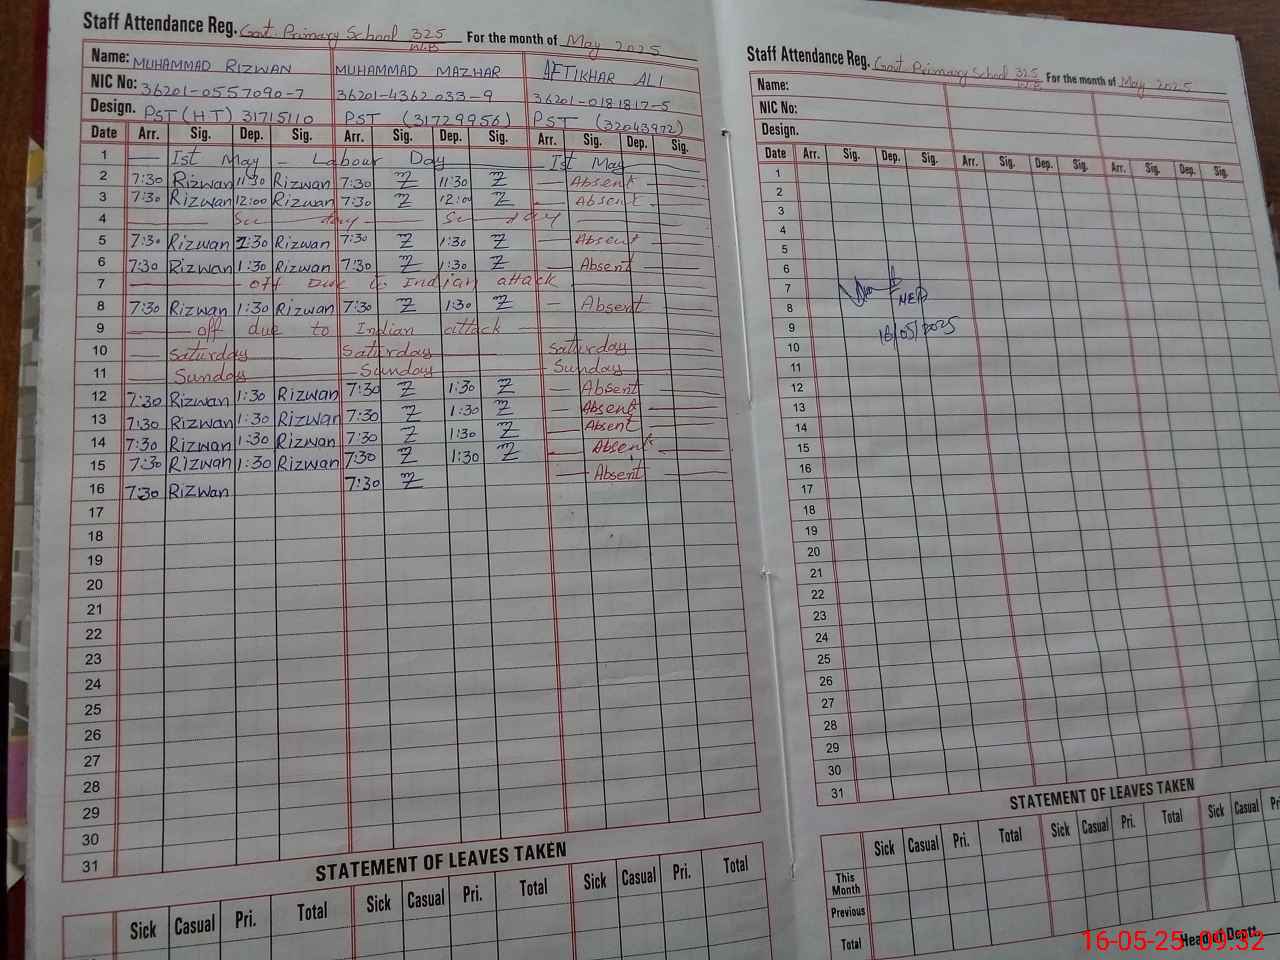 Staff Attendance Reg. Govt. Primary School 325 W.B For the month of May 2025
Name: MUHAMMAD RIZWAN MUHAMMAD MAZHAR AFTIKHAR ALI
NIC No: 36201-0557090-7 36201-4362033-9 36201-0181817-5
Design. PST (HT) 31715110 PST (31729956) PST (32043972)
Date Arr. Sig. Dep. Sig. Arr. Sig. Dep. Sig. Arr. Sig. Dep. Sig.
1 — Ist May – Labour Day — Ist May
2 7:30 Rizwan 11:30 Rizwan 7:30 11:30 — Absent —
3 7:30 Rizwan 12:00 Rizwan 7:30 12:00 — Absent —
4
5 7:30 Rizwan 1:30 Rizwan 7:30 1:30 — Absent —
6 7:30 Rizwan 1:30 Rizwan 7:30 1:30 — Absent —
7 — off Due to Indian attack
8 7:30 Rizwan 1:30 Rizwan 7:30 1:30 — Absent —
9 — off due to Indian attack —
10 — Saturday — Saturday — Saturday
11 — Sunday — Sunday — Sunday
12 7:30 Rizwan 1:30 Rizwan 7:30 1:30 — Absent —
13 7:30 Rizwan 1:30 Rizwan 7:30 1:30 — Absent —
14 7:30 Rizwan 1:30 Rizwan 7:30 1:30 — Absent —
15 7:30 Rizwan 1:30 Rizwan 7:30 1:30 — Absent —
16 7:30 Rizwan 7:30 — Absent —
17
18
19
20
21
22
23
24
25
26
27
28
29
30
31
STATEMENT OF LEAVES TAKEN
Sick Casual Pri. Total Sick Casual Pri. Total Sick Casual Pri. Total
Staff Attendance Reg. Govt Primary School 325 W.B For the month of May 2025
Name:
NIC No:
Design.
Date Arr. Sig. Dep. Sig. Arr. Sig. Dep. Sig. Arr. Sig. Dep. Sig.
1
2
3
4
5
6
7
8
9 16/05/2025
10
11
12
13
14
15
16
17
18
19
20
21
22
23
24
25
26
27
28
29
30
31
STATEMENT OF LEAVES TAKEN
Sick Casual Pri. Total Sick Casual Pri. Total Sick Casual
This Month
Previous
Total
Head of Deptt.
16-05-25 09:32